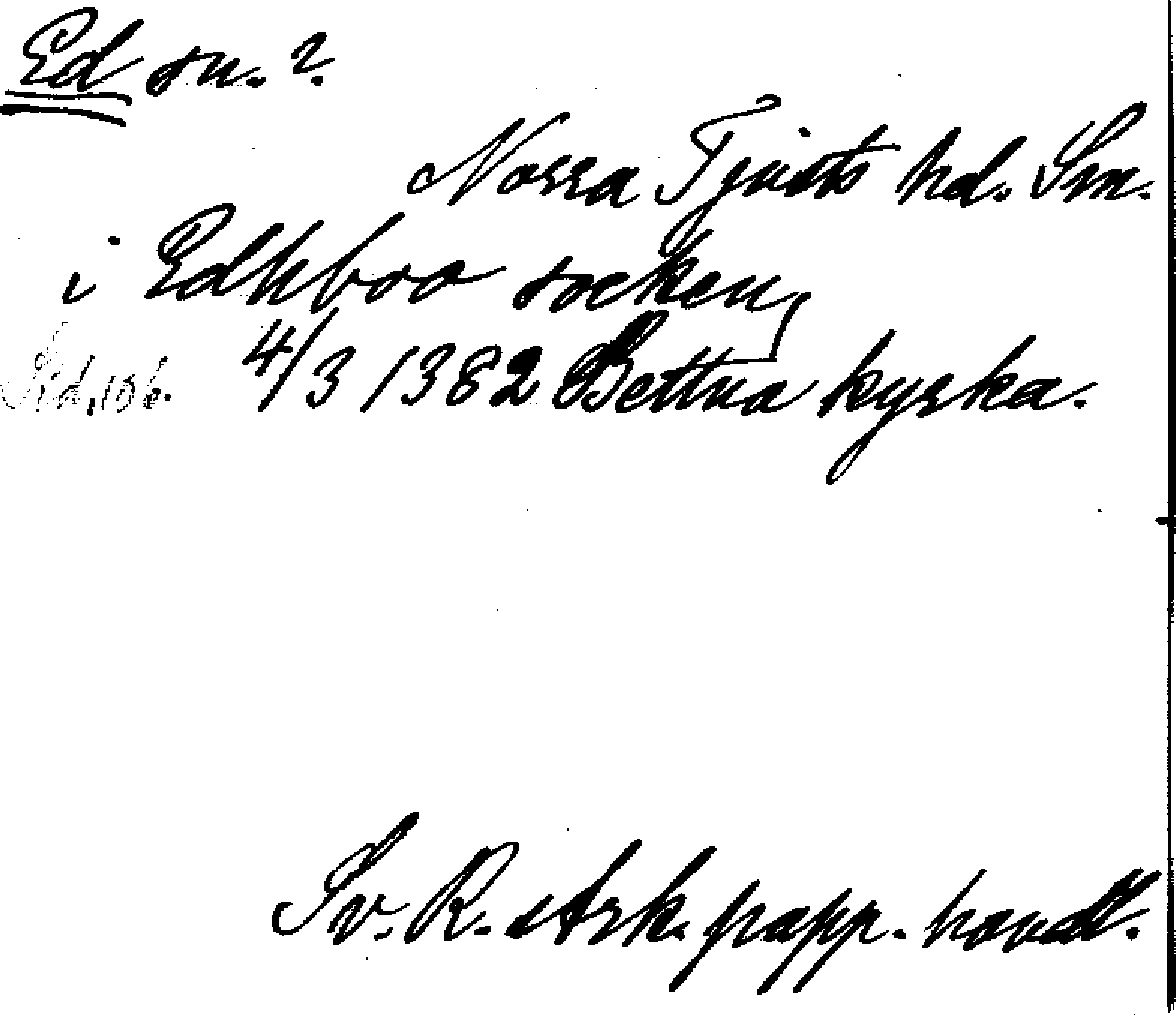 Ed sn. 2.
Norra Tjusts hd. Sm.
i Edhboo socken,
Sid. 106. 4/3 1382 Bettna kyrka.
Sv. R. Ark. papp. handl.